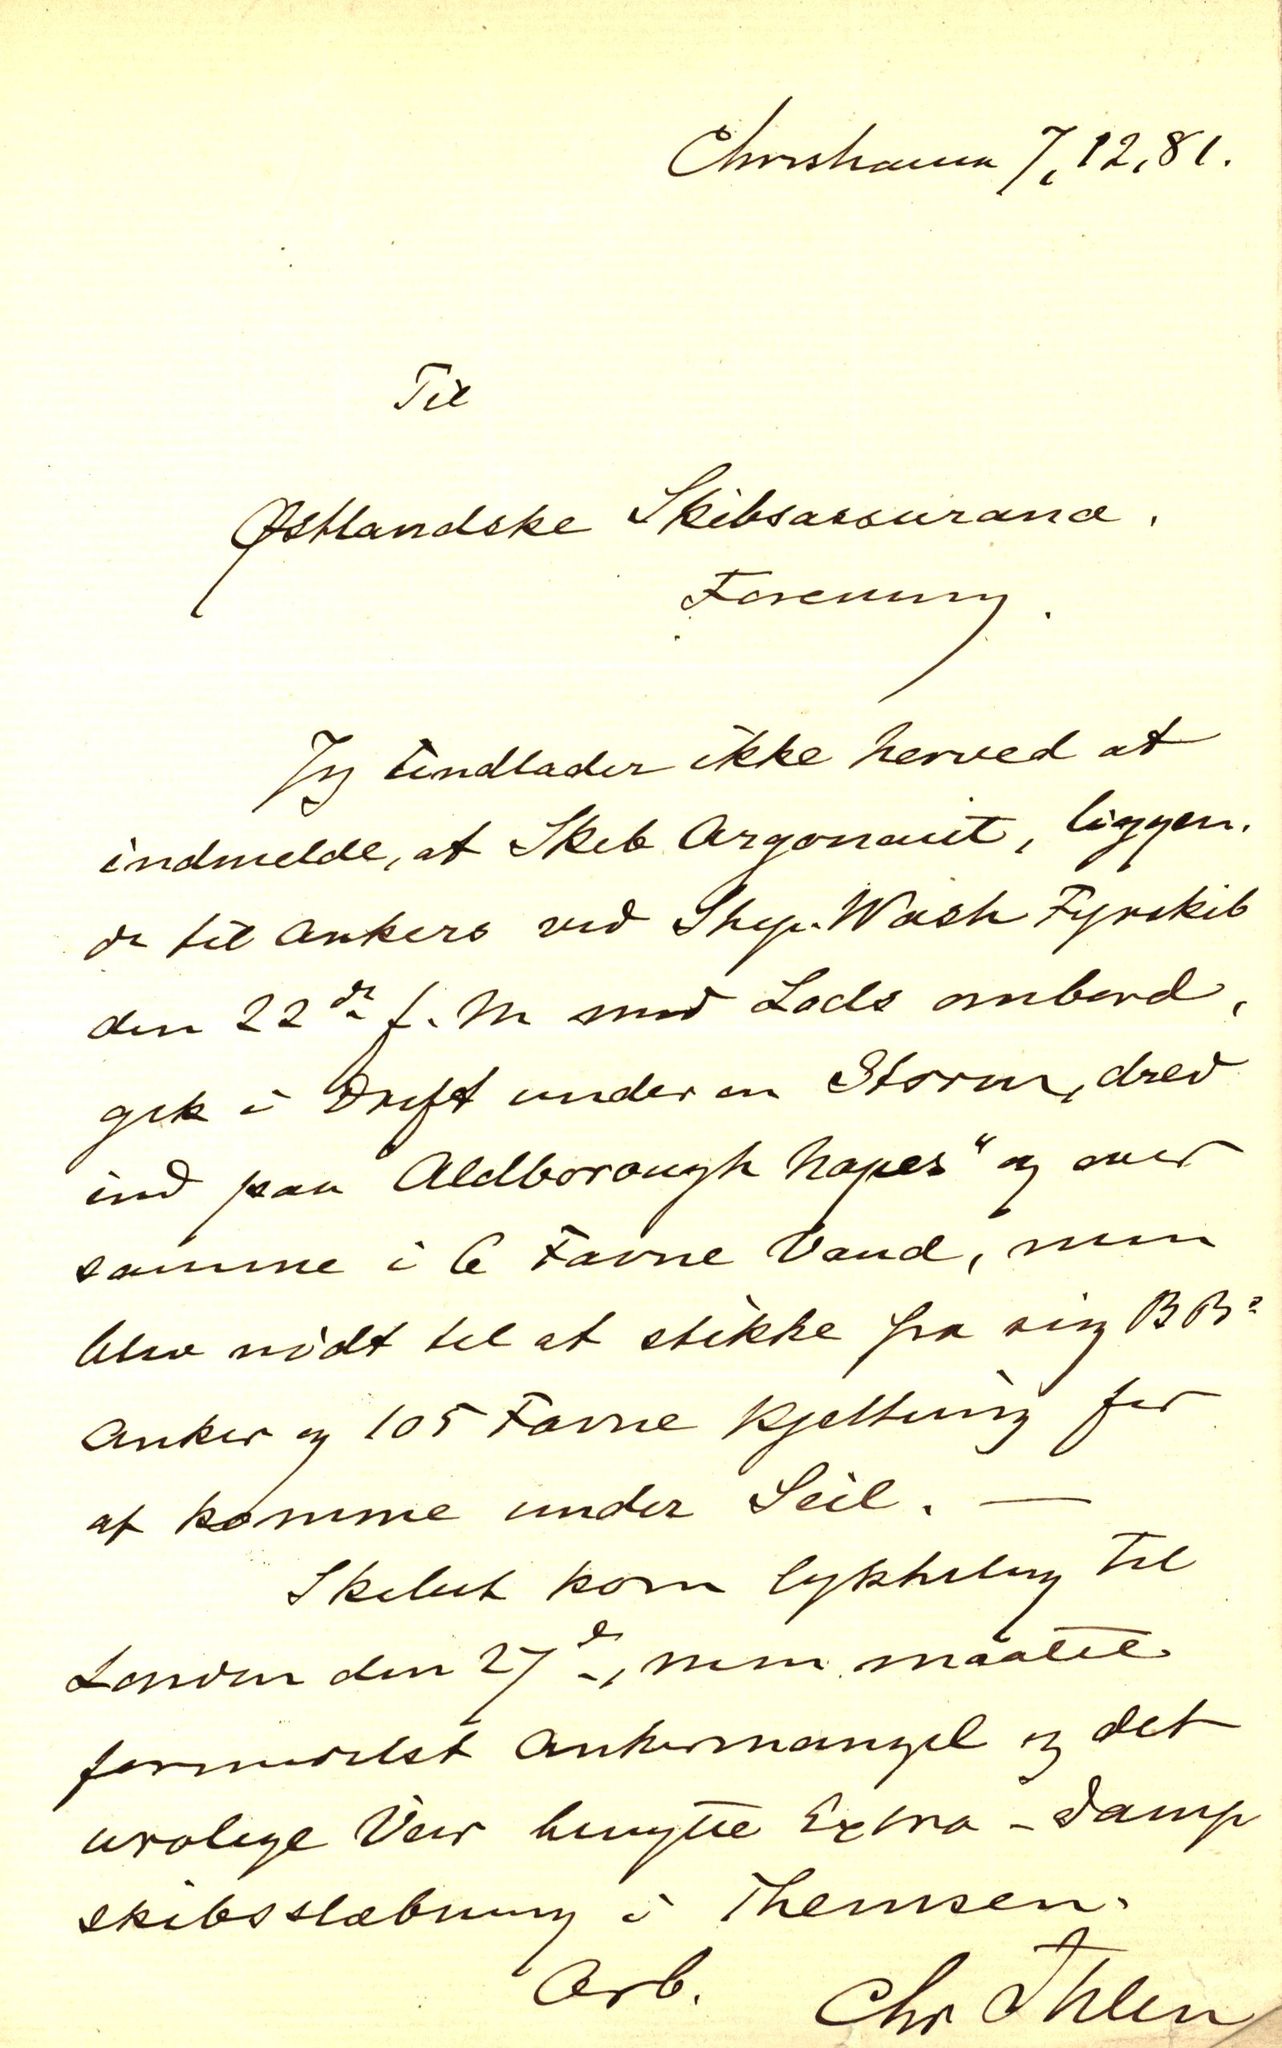 Christiania 7,12,81.
Til
Østlandske Skibsassurance.
Forening.
Jeg undlader ikke herved at
indmelde, at Skib Argonaut, liggen-
de til Ankers ved Ship-Wash Fyrskib
den 22de f. M med Lods ombord,
gik i Drift under en Storm, drev
ind paa "Aldborough Napes" og over
samme i 6 Favne Vand, men
blev nødt til at stikke fra sig BBs
Anker og 105 Favne Kjetting for
at komme under Seil. —
Skibet kom lykkelig til
London den 27de, men maatte
formedelst Ankermangel og det
urolige Veir benytte Extra-Damp
skibsslæbning i Themsen.
Ærb. Chr Ihlen